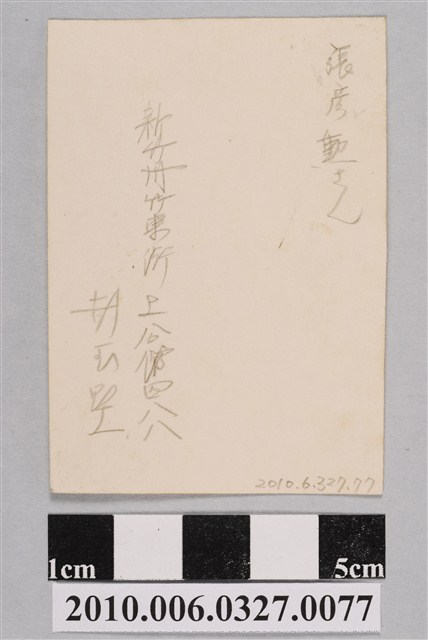 張彦勳さん
新竹州竹東街上公館四八八
胡玉
2010.6.327.77
1cm
5cm
2010.006.0327.0077